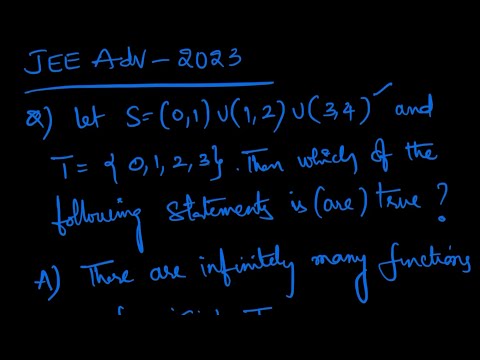 JEE Adv - 2023
Q) Let S = (0,1) ∪ (1,2) ∪ (3,4) and
T = { 0, 1, 2, 3}. Then which of the
following statements is (are) true ?
A) There are infinitely many functions